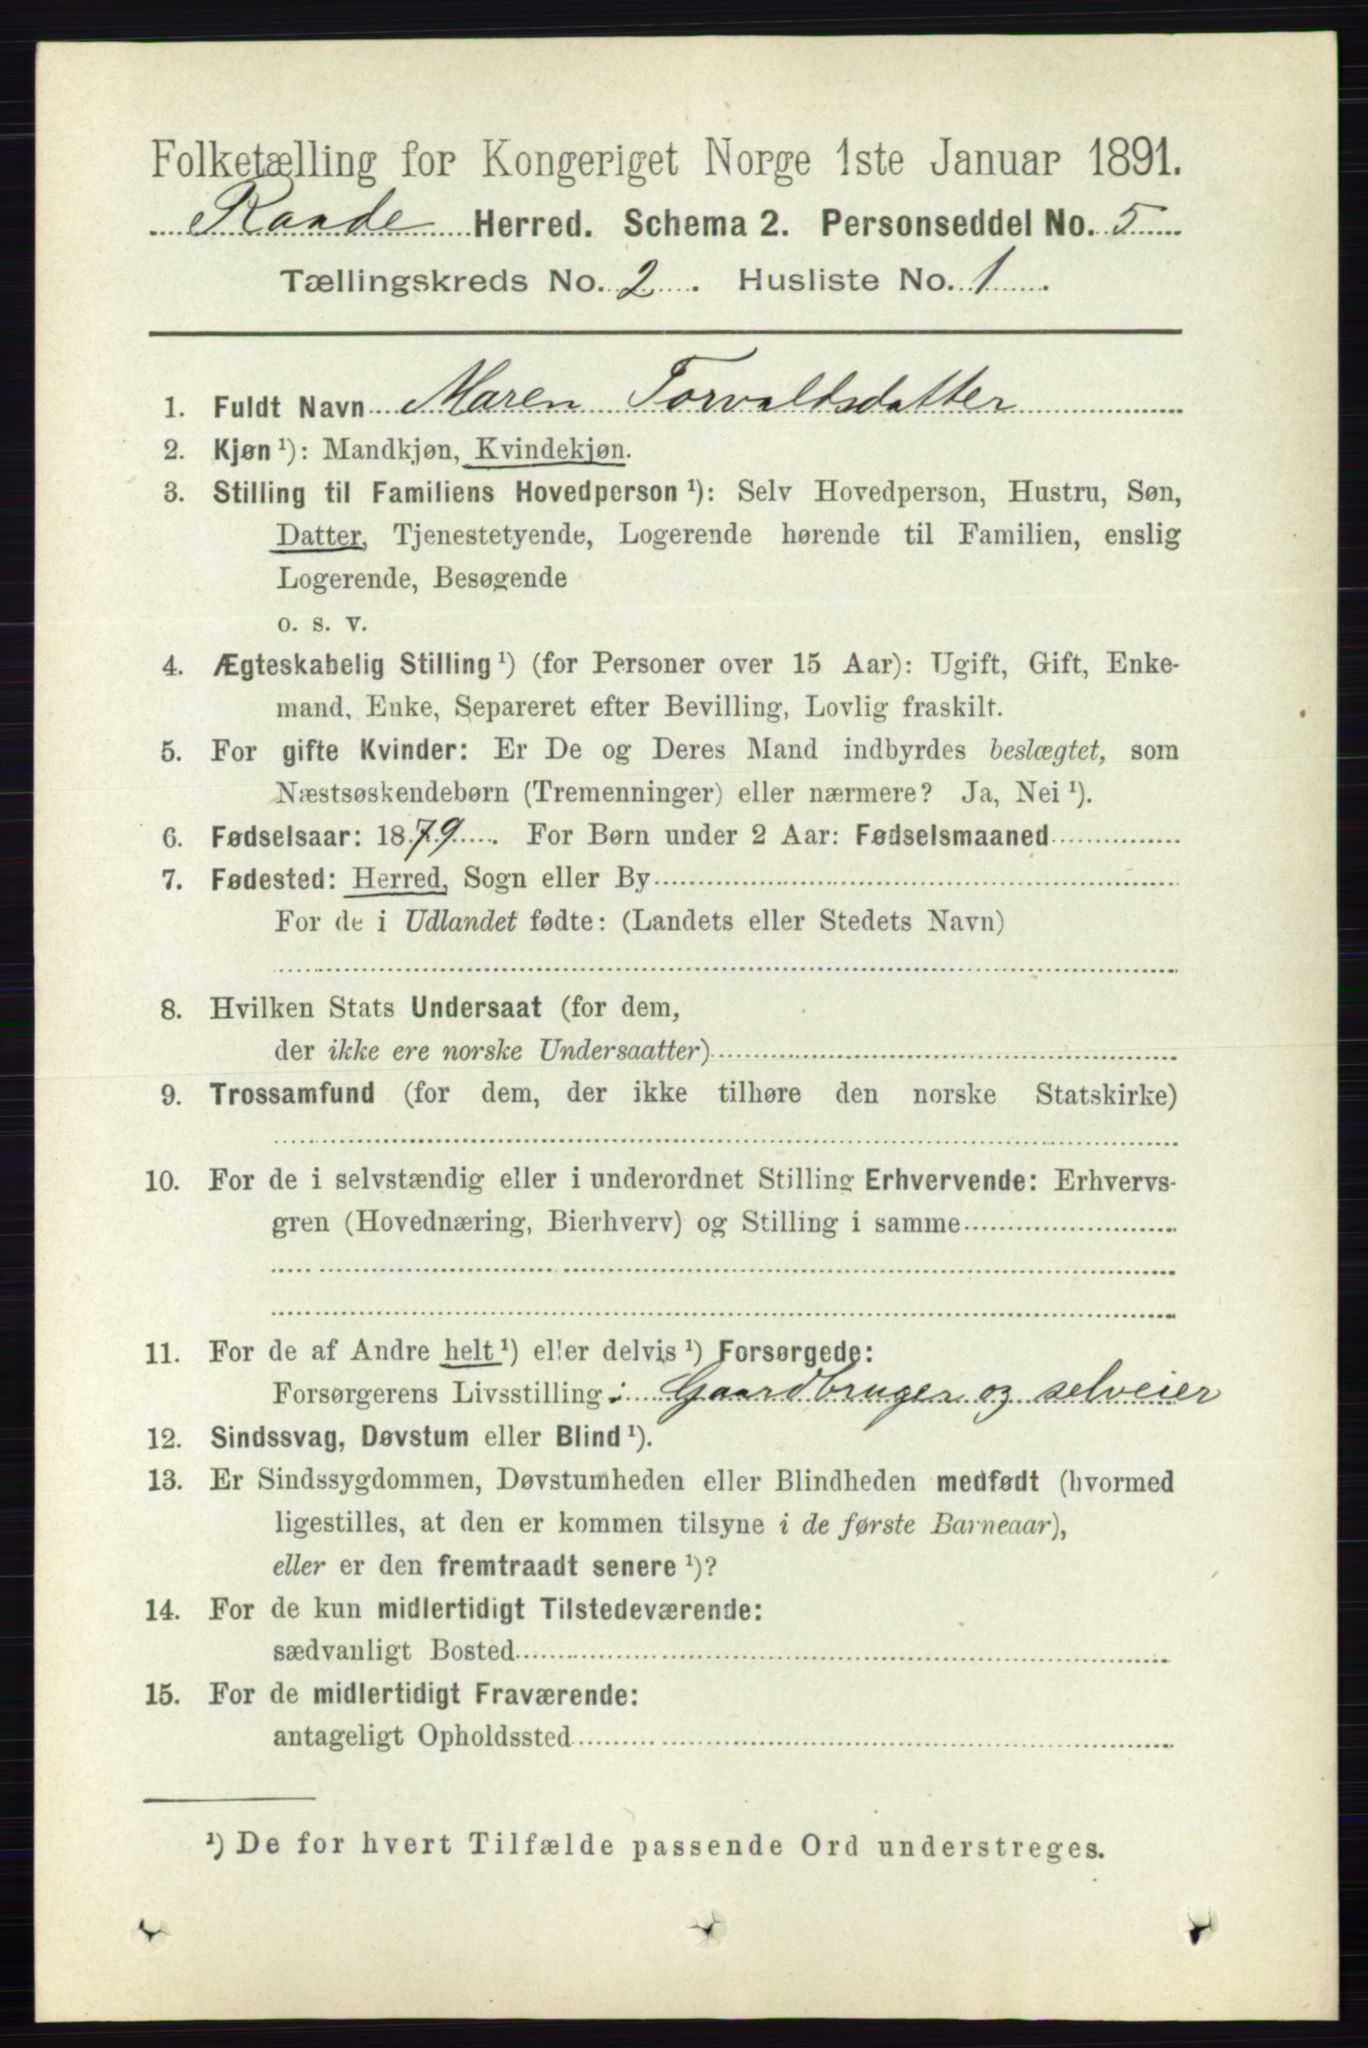 Folketælling for Kongeriget Norge 1ste Januar 1891.
Raade Herred. Schema 2. Personseddel No. 5
Tællingskreds No. 2. Husliste No. 1.
1. Fuldt Navn Maren Torvaldsdatter
2. Kjøn ¹): Mandkjøn, Kvindekjøn.
3. Stilling til Familiens Hovedperson ¹): Selv Hovedperson, Hustru, Søn,
Datter, Tjenestetyende, Logerende hørende til Familien, enslig
Logerende, Besøgende
o. s. v.
4. Ægteskabelig Stilling ¹) (for Personer over 15 Aar): Ugift, Gift, Enke-
mand, Enke, Separeret efter Bevilling, Lovlig fraskilt.
5. For gifte Kvinder: Er De og Deres Mand indbyrdes beslægtet, som
Næstsøskendebørn (Tremenninger) eller nærmere? Ja, Nei ¹).
6. Fødselsaar: 1879. For Børn under 2 Aar: Fødselsmaaned
7. Fødested: Herred, Sogn eller By
For de i Udlandet fødte: (Landets eller Stedets Navn)
8. Hvilken Stats Undersaat (for dem,
der ikke ere norske Undersaatter)
9. Trossamfund (for dem, der ikke tilhøre den norske Statskirke)
10. For de i selvstændig eller i underordnet Stilling Erhvervende: Erhvervs-
gren (Hovednæring, Bierhverv) og Stilling i samme
11. For de af Andre helt ¹) eller delvis ¹) Forsørgede:
Forsørgerens Livsstilling: Gaardbruger og selveier
12. Sindssvag, Døvstum eller Blind ¹).
13. Er Sindssygdommen, Døvstumheden eller Blindheden medfødt (hvormed
ligestilles, at den er kommen tilsyne i de første Barneaar),
eller er den fremtraadt senere ¹)?
14. For de kun midlertidigt Tilstedeværende:
sædvanligt Bosted
15. For de midlertidigt Fraværende:
antageligt Opholdssted
¹) De for hvert Tilfælde passende Ord understreges.